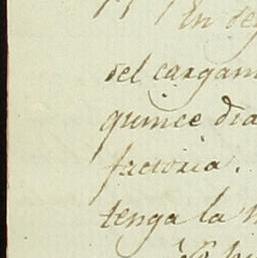 En de
del cargam
quince dia
factoria.
tenga la